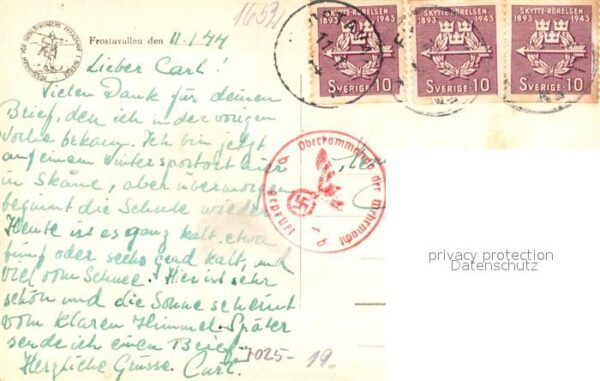 1652
Frostavallen den 11.1.44
Lieber Carl!
Vielen Dank für deinen
Brief, den ich in der vorigen
Woche bekam. Ich bin jetzt
auf einem Wintersportort hier
in Skåne, aber übermorgen
beginnt die Schule wieder.
Heute ist es ganz kalt, etwa
fünf oder sechs grad kalt, und
viel vom Schnee! Hier ist sehr
schön und die Sonne scheint
vom klaren Himmel. Später
sende ich einen Brief.
Herzliche Grüsse. Curt.
7025-
19.-
SKYTTE-RÖRELSEN
1893 1943
SVERIGE 10
SKYTTE-RÖRELSEN
1893 1943
SVERIGE 10
SKYTTE-RÖRELSEN
1893 1943
SVERIGE 10
Oberkommando der Wehrmacht
geprüft
b
b
privacy protection
Datenschutz